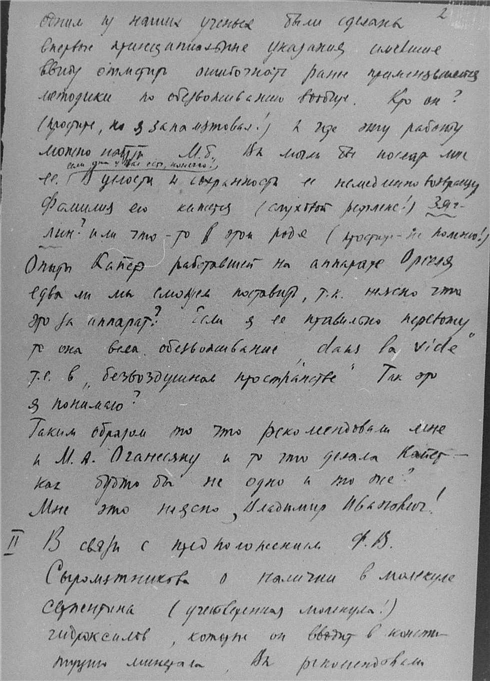 2
одним из наших ученых были сделаны
впервые принципиальные указания имевшие
ввиду отметить ошибочность ранее применявшейся
методики по обезвоживанию вообще. Кто он?
(простите, но я запамятовал!) и где эту работу
можно найти М.б. Вы могли бы послать мне
если она у Вас есть, конечно!)
ее. В целости и сохранности ее немедленно возвращу
Фамилия его кажется (слуховой рефлекс!) Зяг-
лин? или что-то в этом роде (простите - не помню!)
Опыты работавшей на аппарате
едва ли мы сможем поставить, т.к. неясно что
это за аппарат? Если я ее правильно перевожу
то она вела обезвоживание „dans la vide"
т.е. в „безвоздушном пространстве" Так это
я понимаю?
Таким образом то что рекомендовали мне
и М.А. Оганесяну и то что делала
как будто бы не одно и то же?
Мне это неясно, Владимир Иванович!
II В связи с предположением Ф.В.
Сыромятникова о наличии в молекуле
серпентина (учетверенная молекула!)
гидроксилов, которые он вводит в консти-
туцию минерала, Вы рекомендовали